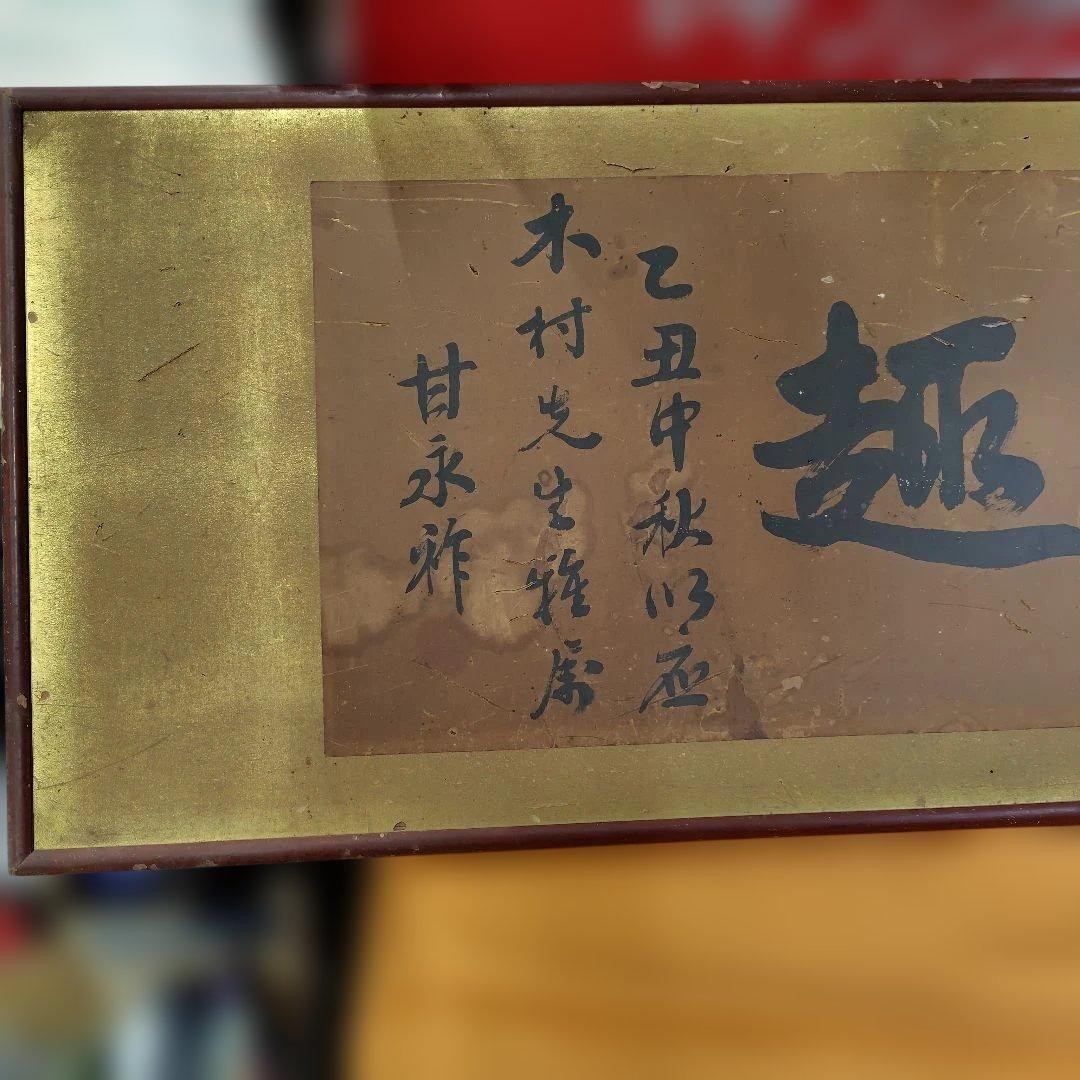 趣
乙丑中秋
木村先生雅属
甘永祚